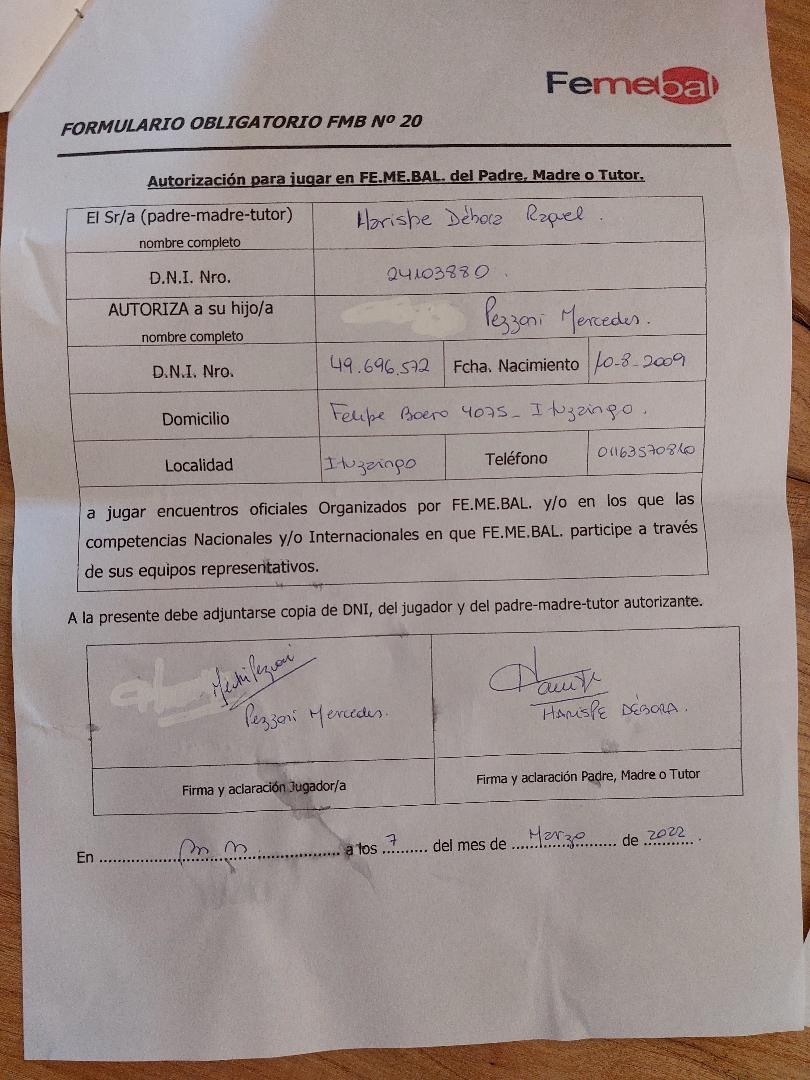 Femebal
FORMULARIO OBLIGATORIO FMB Nº 20
Autorización para jugar en FE.ME.BAL. del Padre, Madre o Tutor.
El Sr/a (padre-madre-tutor) Harispe Débora Raquel.
nombre completo
D.N.I. Nro. 24103880.
AUTORIZA a su hijo/a Pezzoni Mercedes.
nombre completo
D.N.I. Nro. 49.696.572 Fcha. Nacimiento 10-8-2009
Domicilio Felipe Boero 4075 - Ituzaingo.
Localidad Ituzaingo Teléfono 01163570810
a jugar encuentros oficiales Organizados por FE.ME.BAL. y/o en los que las
competencias Nacionales y/o Internacionales en que FE.ME.BAL. participe a través
de sus equipos representativos.
A la presente debe adjuntarse copia de DNI, del jugador y del padre-madre-tutor autorizante.
Mechi Pezzoni
Pezzoni Mercedes. HARISPE DÉBORA.
Firma y aclaración Jugador/a Firma y aclaración Padre, Madre o Tutor
En .......... a los 7 del mes de Marzo de 2022.